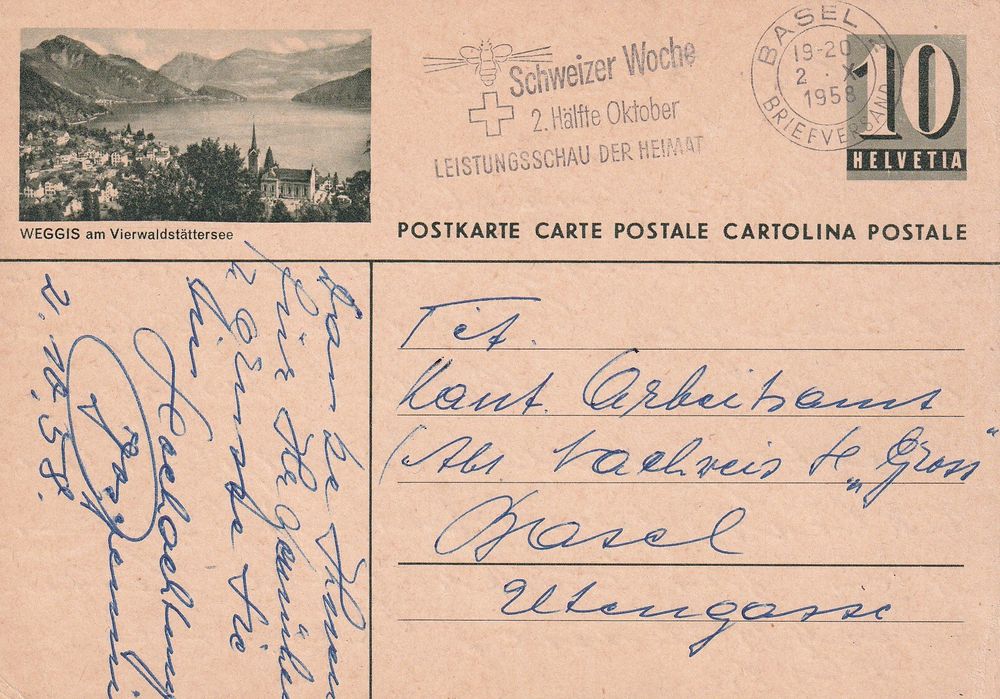 Schweizer Woche
2. Hälfte Oktober
LEISTUNGSSCHAU DER HEIMAT
BASEL 2
19-20
2.X.
1958
BRIEFVERSAND
10
HELVETIA
WEGGIS am Vierwaldstättersee
POSTKARTE CARTE POSTALE CARTOLINA POSTALE
Tit.
Kant. Arbeitsamt
(Abt Nachweis H „Gross"
Basel
Utengasse
Danke Ihnen
für Ihr Bemühen
& Grüsse Sie
Hochachtung
2.10.58.